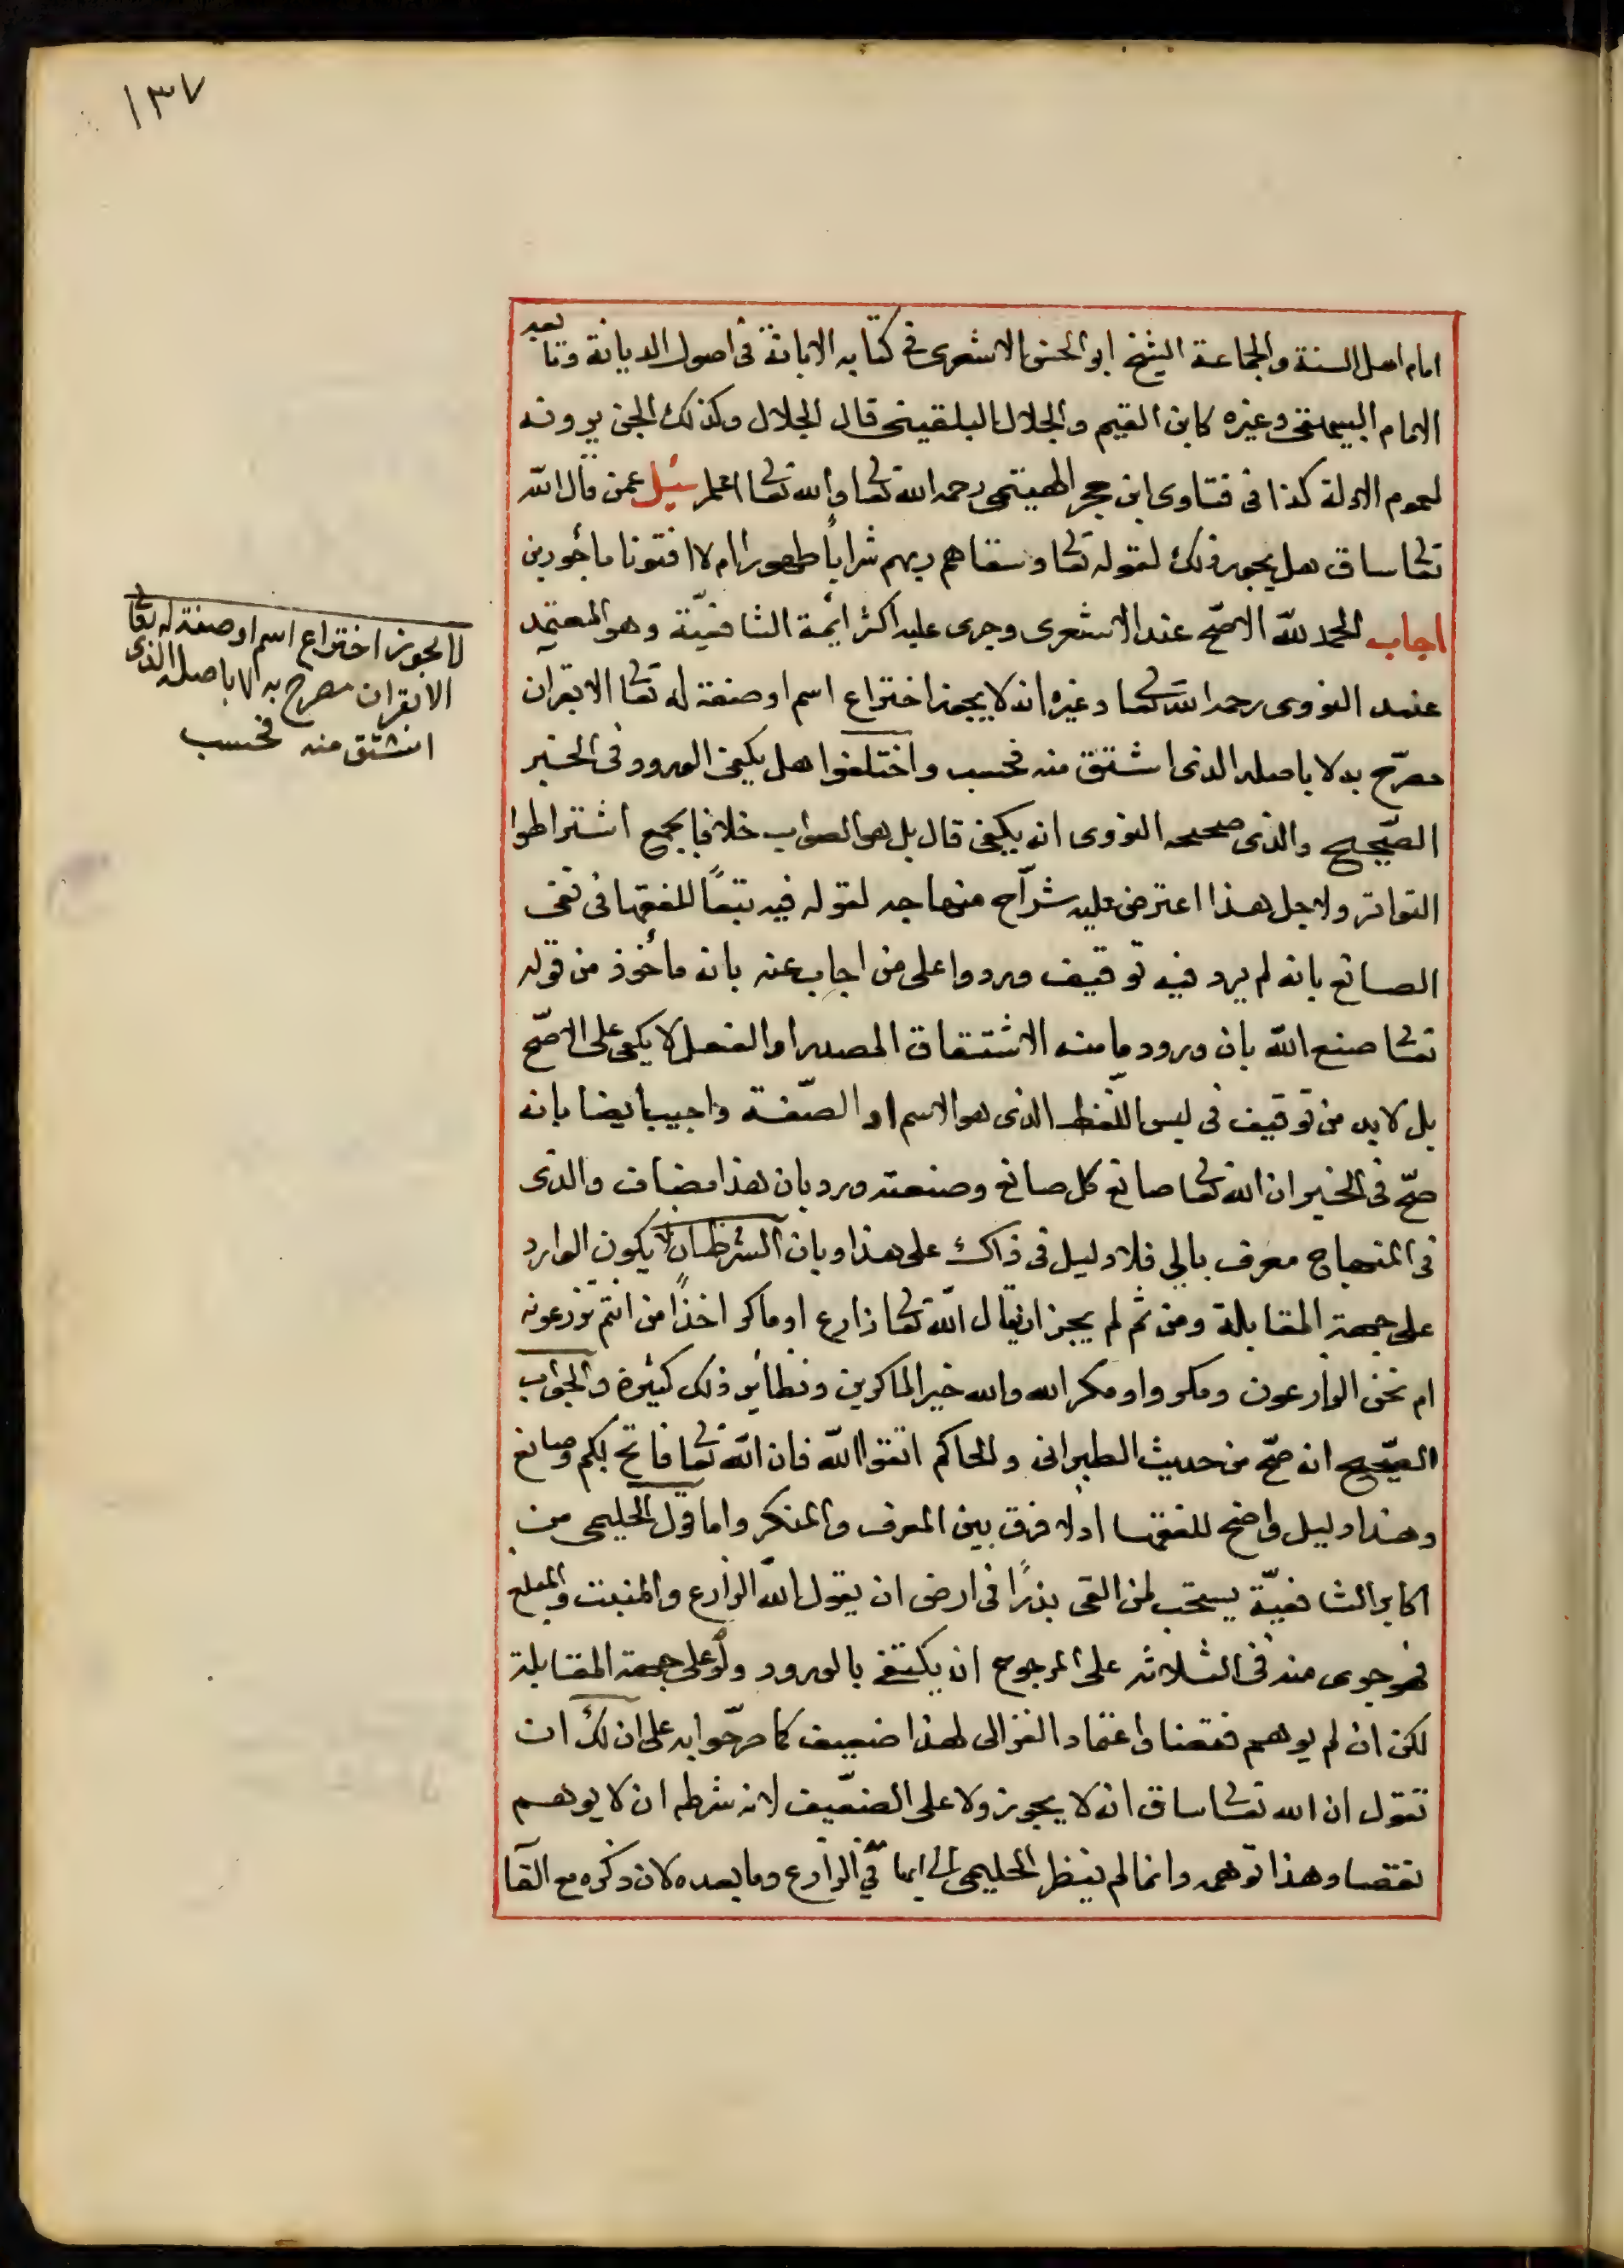 ١٣٧
امام اهل السنة والجماعة الشيخ ابو الحسن الاشعرى فى كتابه الابانة فى اصول الديانة وتابعه
الامام البيهقى وغيره كابن القيم والجلال البلقينى قال الجلال وكذلك الجن يرونه
لعموم الادلة كذا فى فتاوى ابن حجر الهيتمى رحمه الله تعا والله تعا اعلم سئيل عمن قال الله
تعا ساق هل يجوز ذلك لقوله تعا وسقاهم ربهم شرابًا طهورا ام لا افتونا مأجورين
اجاب الحمد لله الاصحّ عند الاشعرى وجرى عليه اكثر ايمة الشافعيّة وهو المعتمد
عند النووى رحمه الله تعا وغيره انه لا يجوز اختراع اسم او صفة له تعا الا بقران
مصرّح به لا باصله الذى اشتق منه فحسب واختلفوا هل يكفى الورود فى الخبر
الصّحيح والذى صححه النووى انه يكفى قال بل هو الصواب خلافا لجمع اشتراطوا
التواتر ولاجل هذا اعترض عليه شرّاح منهاجه لقوله فيه تبعًا للفقها فى نفى
الصانع بانه لم يرد فيه توقيف وردوا على من اجاب عنه بانه مأخوذ من قوله
تعا صنع الله بان ورود ما منه الاشتقاق المصدر او الفعل لا يكفى على الاصحّ
بل لا بد من توقيف فى ليس اللّفظ الذى هو الاسم او الصّفة واجيب ايضا بانه
صحّ فى الخبر ان الله تعا صانع كل صانع وصنعته ورد بان هذا مضاف والذى
فى المنهاج معرف بالى فلا دليل فى ذاك على هذا وبان الشرط ان لا يكون الوارد
على جهة المقابلة ومن ثم لم يجز ان يقال الله تعا زارع او ماكر اخذًا من انتم تزرعونه
ام نحن الزارعون ومكروا ومكر الله والله خير الماكرين ونظاير ذلك كثيرة والجواب
الصّحيح انه صحّ من حديث الطبرانى والحاكم اتقوا الله فان الله تعا فاتح لكم وصانع
وهذا دليل واضح للفقها اذ لا فرق بين المعرف والمنكر واما قول الحليمى من
اكابر الشافعيّة يستحب لمن القى بذرًا فى ارض ان يقول الله الزارع والمنبت والمبلغ
فهو جرى منه فى الثلاثه على المرجوح ان يكتفى بالورود ولو على جهة المقابلة
لكن ان لم يوهم نقصا واعتماد الغزالى لهذا ضعيف كما صرّحوا به على ان لك ان
تقول ان الله تعا ساق انه لا يجوز ولا على الضعّيف لانه شرطه ان لا يوهم
نقصا وهذا توهمه وانما لم ينظر الحليمى الى ايهامه فى الزارع وما بعده لان ذكره مع القا
لا يجوز اختراع اسم او صفة له تعا
الا بقران مصرح به الا باصله الذى
اشتق منه فحسب